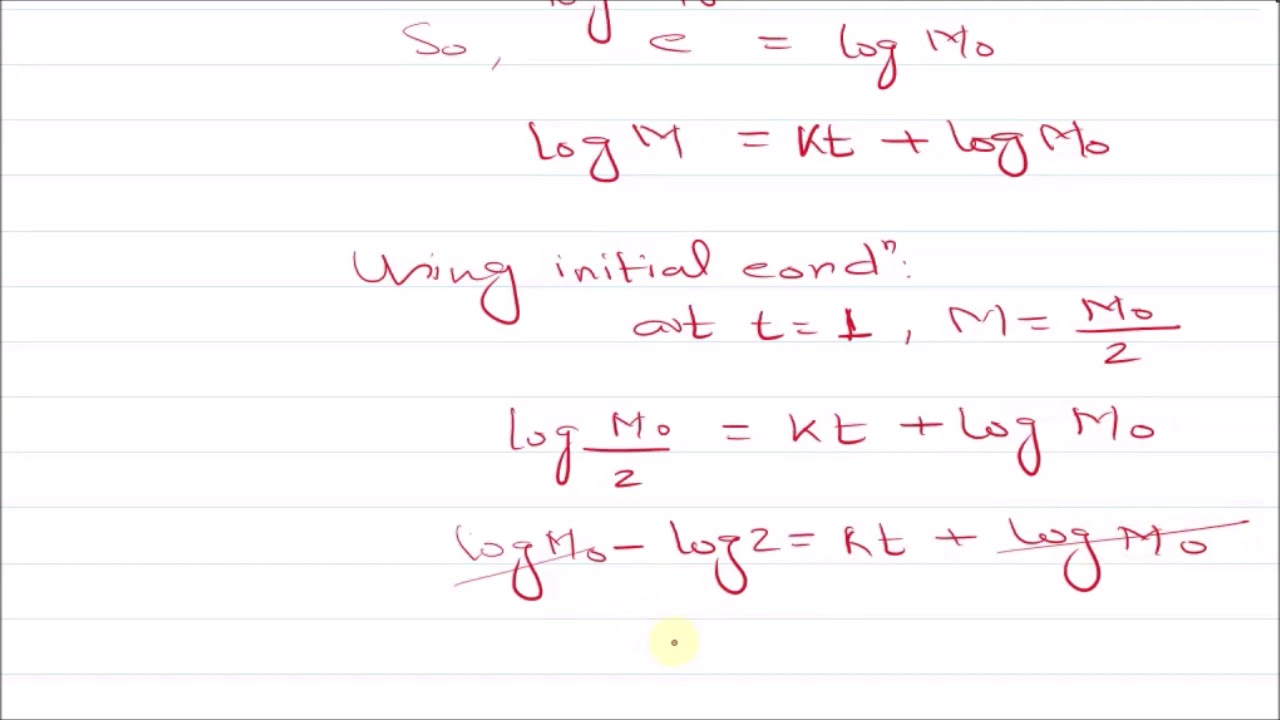 So, log c = log M₀
log M = Kt + log M₀
Using initial condⁿ:
at t = 1, M = M₀/2
log M₀/2 = Kt + log M₀
log M₀ - log 2 = Kt + log M₀